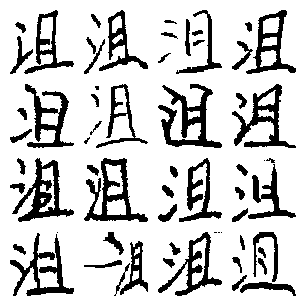 沮沮沮沮
沮沮沮沮
沮沮沮沮
沮沮沮沮